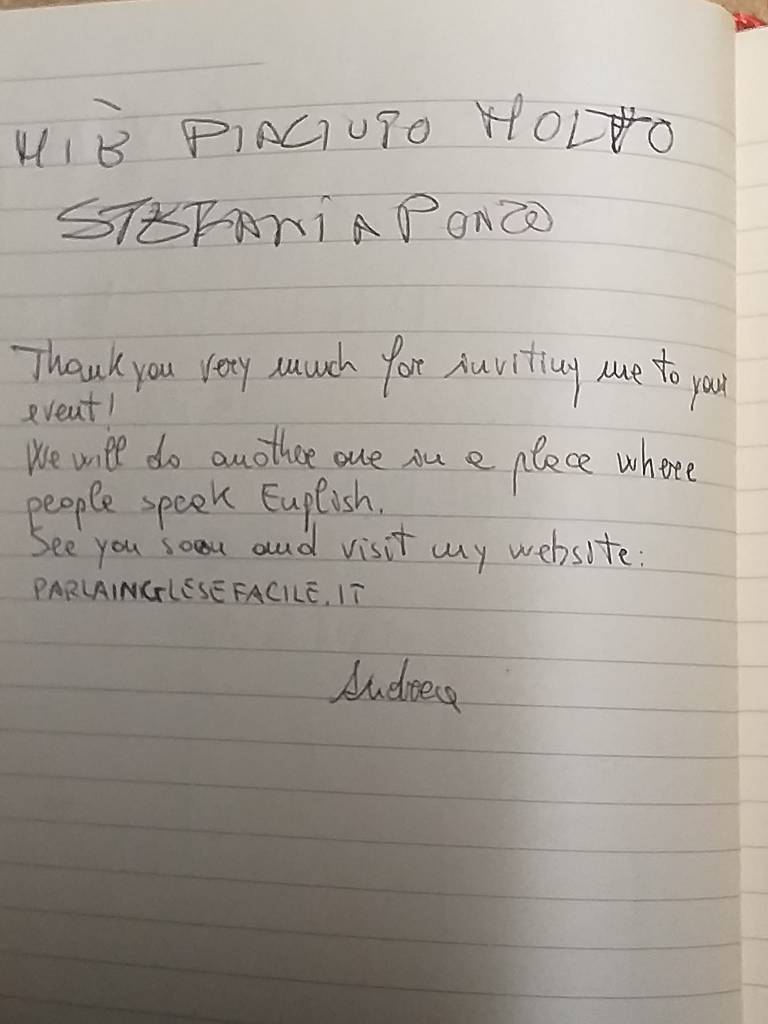 MI È PIACIUTO MOLTO
STEFANIA PONZO
Thank you very much for inviting me to your
event!
We will do another one in a place where
people speak English.
See you soon and visit my website:
PARLAINGLESEFACILE.IT
Andreea